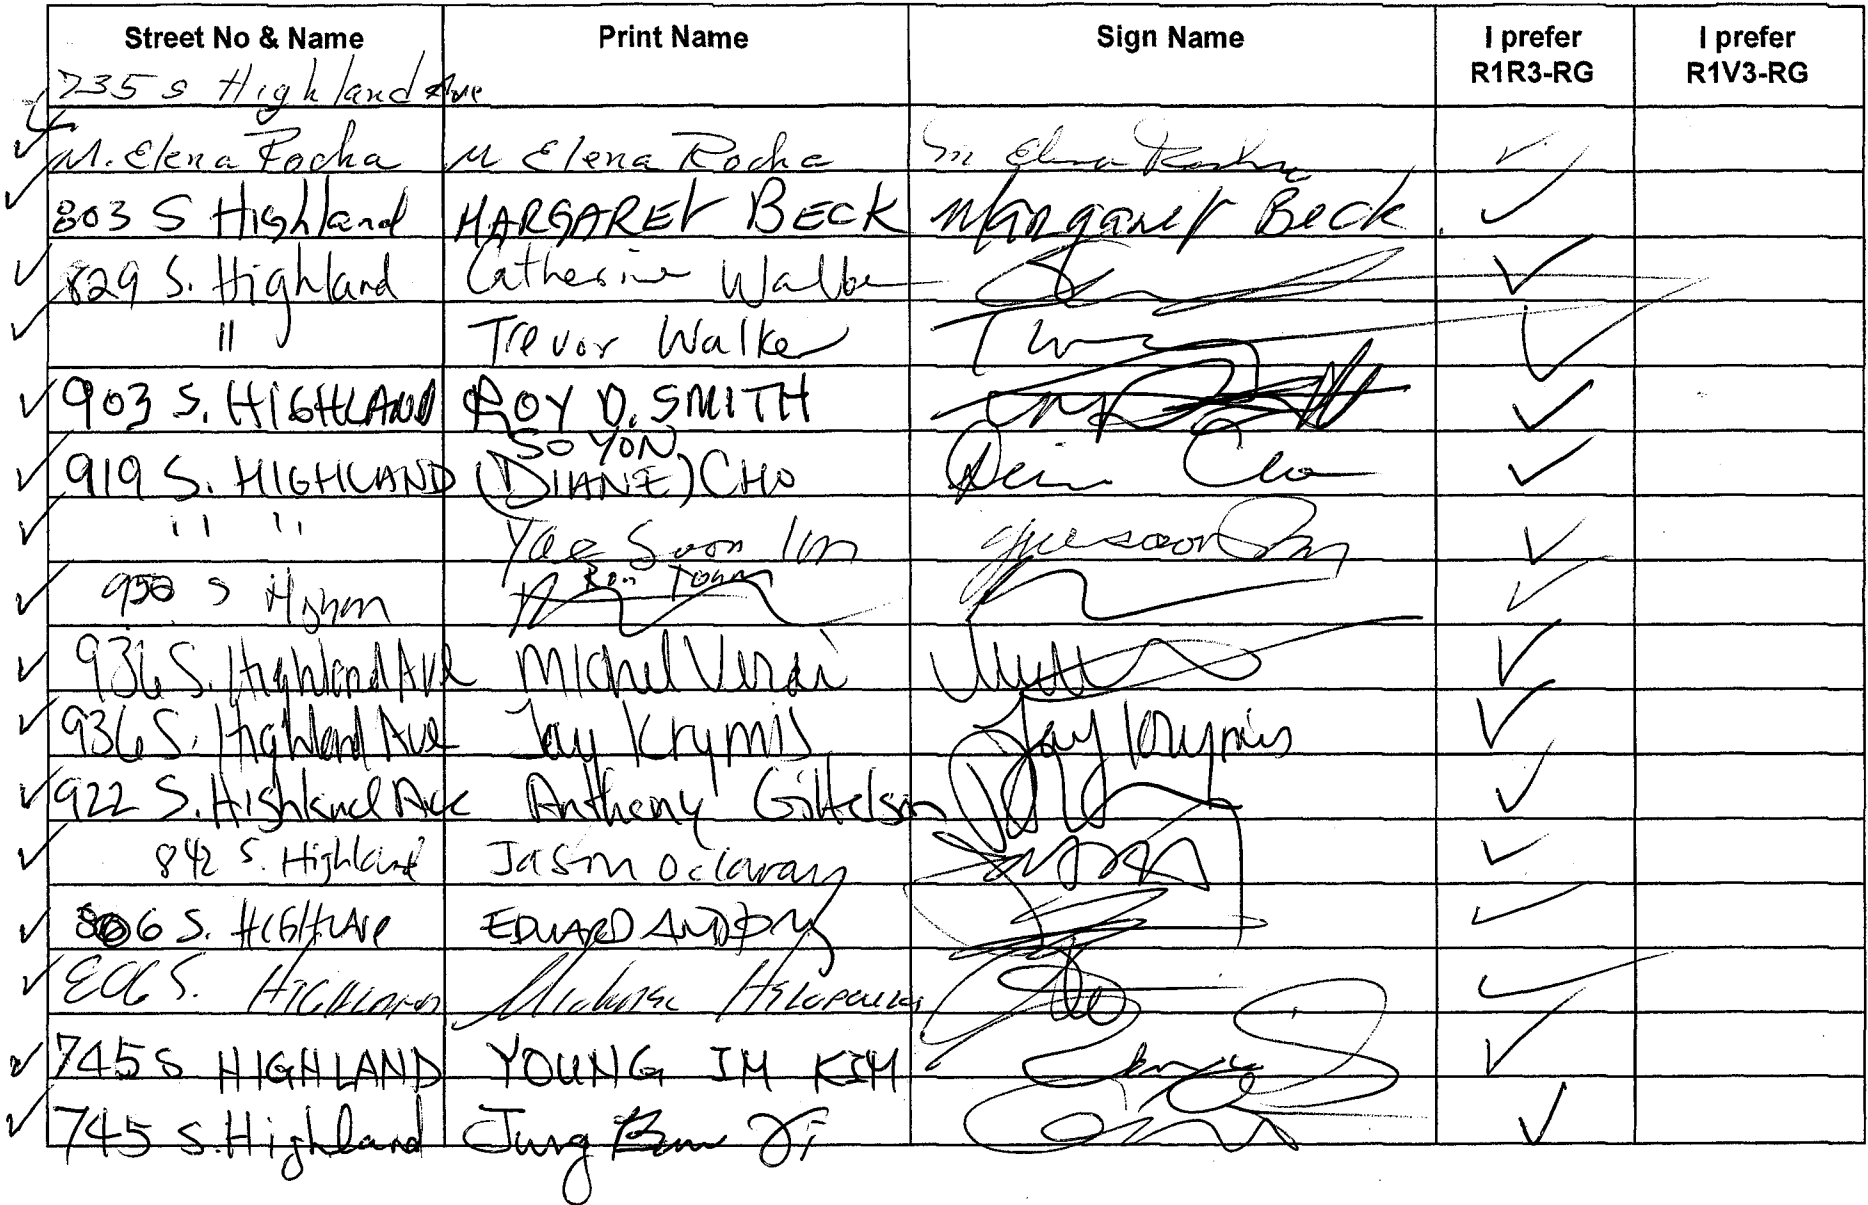 Street No & Name Print Name Sign Name I prefer R1R3-RG I prefer R1V3-RG
735 S Highland Ave
M. Elena Rocha M Elena Rocha M Elena Rocha ✓
803 S Highland MARGARET BECK Margaret Beck ✓
829 S. Highland Catherine Walker ✓
" Trevor Walker ✓
903 S. HIGHLAND ROY D. SMITH ✓
919 S. HIGHLAND SO YON (DIANE) CHO ✓
" " Soon ✓
950 S ✓
936 S. Highland Ave Michel Verdi ✓
936 S. Highland Ave Jay Krymis Jay Krymis ✓
922 S. Highland Ave Anthony Gittelson ✓
842 S. Highland Jason ✓
806 S. EDWARD ✓
806 S. HIGHLAND ✓
745 S HIGHLAND YOUNG IM KIM ✓
745 S. Highland Jung Bum Yi ✓